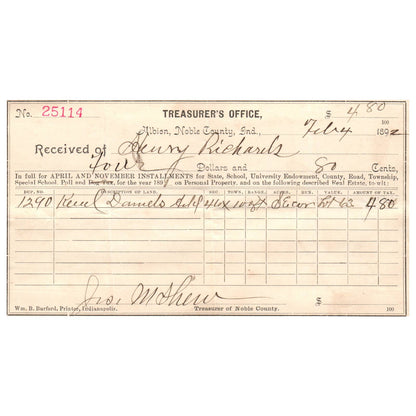 No. 25114 TREASURER'S OFFICE, $ 4 80/100
Albion, Noble County, Ind., Feb 4 1892
Received of Henry Richards
four Dollars and 80 Cents,
In full for APRIL AND NOVEMBER INSTALLMENTS for State, School, University Endowment, County, Road, Township,
Special School, Poll and Dog Tax, for the year 189 on Personal Property, and on the following described Real Estate, to-wit:
DUP. NO. DESCRIPTION OF LAND. TOWN, RANGE, ACRES. VALUE. AMOUNT OF TAX,
1290 Daniels 4 80
$
Wm. B. Burford, Printer, Indianapolis. Treasurer of Noble County. 100